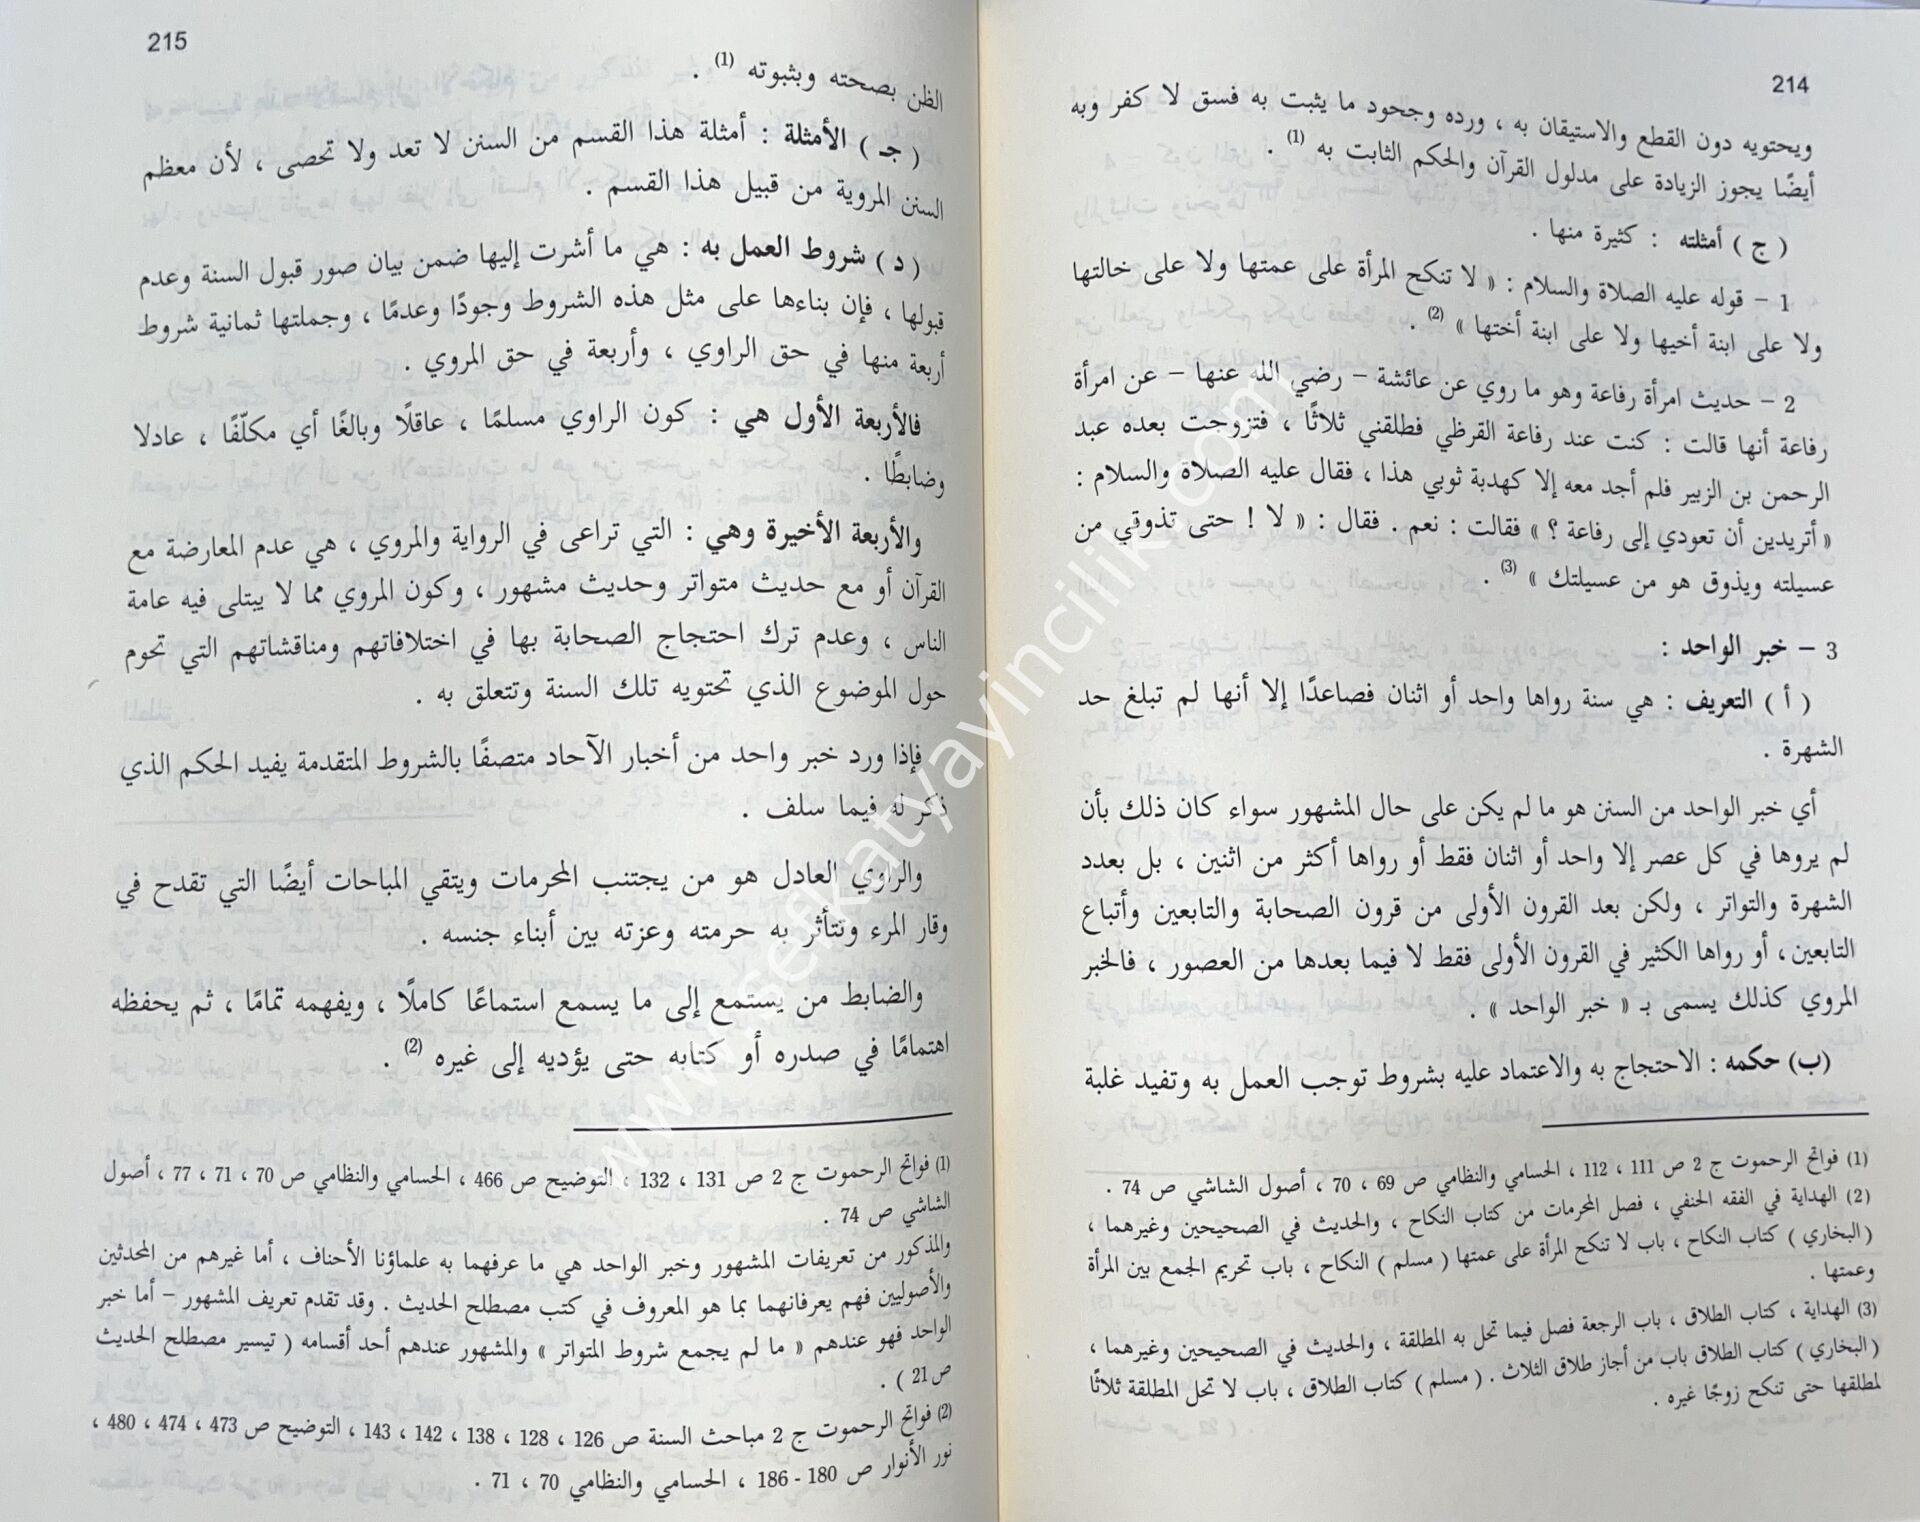 214
ويحتويه دون القطع والاستيقان به ، ورده وجحود ما يثبت به فسق لا كفر وبه
أيضًا يجوز الزيادة على مدلول القرآن والحكم الثابت به (1) .
( ج ) أمثلته : كثيرة منها .
1 - قوله عليه الصلاة والسلام : « لا تنكح المرأة على عمتها ولا على خالتها
ولا على ابنة أخيها ولا على ابنة أختها » (2) .
2 - حديث امرأة رفاعة وهو ما روي عن عائشة - رضي الله عنها - عن امرأة
رفاعة أنها قالت : كنت عند رفاعة القرظي فطلقني ثلاثًا ، فتزوجت بعده عبد
الرحمن بن الزبير فلم أجد معه إلا كهدبة ثوبي هذا ، فقال عليه الصلاة والسلام :
« أتريدين أن تعودي إلى رفاعة ؟ » فقالت : نعم . فقال : « لا ! حتى تذوقي من
عسيلته ويذوق هو من عسيلتك » (3) .
3 - خبر الواحد :
( أ ) التعريف : هي سنة رواها واحد أو اثنان فصاعدًا إلا أنها لم تبلغ حد
الشهرة .
أي خبر الواحد من السنن هو ما لم يكن على حال المشهور سواء كان ذلك بأن
لم يروها في كل عصر إلا واحد أو اثنان فقط أو رواها أكثر من اثنين ، بل بعدد
الشهرة والتواتر ، ولكن بعد القرون الأولى من قرون الصحابة والتابعين وأتباع
التابعين، أو رواها الكثير في القرون الأولى فقط لا فيما بعدها من العصور ، فالخبر
المروي كذلك يسمى بـ « خبر الواحد » .
(ب) حكمه : الاحتجاج به والاعتماد عليه بشروط توجب العمل به وتفيد غلبة
(1) فواتح الرحموت ج 2 ص 111 ، 112 ، الحسامي والنظامي ص 69 ، 70 ، أصول الشاشي ص 74 .
(2) الهداية في الفقه الحنفي ، فصل المحرمات من كتاب النكاح ، والحديث في الصحيحين وغيرهما ،
(البخاري ) كتاب النكاح ، باب لا تنكح المرأة على عمتها ( مسلم ) النكاح ، باب تحريم الجمع بين المرأة
وعمتها .
(3) الهداية ، كتاب الطلاق ، باب الرجعة فصل فيما تحل به المطلقة ، والحديث في الصحيحين وغيرهما ،
(البخاري ) كتاب الطلاق باب من أجاز طلاق الثلاث . ( مسلم ) كتاب الطلاق ، باب لا تحل المطلقة ثلاثًا
لمطلقها حتى تنكح زوجًا غيره .
215
الظن بصحته وبثبوته (1) .
( جـ ) الأمثلة : أمثلة هذا القسم من السنن لا تعد ولا تحصى ، لأن معظم
السنن المروية من قبيل هذا القسم .
( د ) شروط العمل به : هي ما أشرت إليها ضمن بيان صور قبول السنة وعدم
قبولها ، فإن بناءها على مثل هذه الشروط وجودًا وعدمًا ، وجملتها ثمانية شروط
أربعة منها في حق الراوي ، وأربعة في حق المروي .
فالأربعة الأول هي : كون الراوي مسلمًا ، عاقلًا وبالغًا أي مكلّفًا ، عادلا
وضابطًا .
والأربعة الأخيرة وهي : التي تراعى في الرواية والمروي ، هي عدم المعارضة مع
القرآن أو مع حديث متواتر وحديث مشهور ، وكون المروي مما لا يبتلى فيه عامة
الناس ، وعدم ترك احتجاج الصحابة بها في اختلافاتهم ومناقشاتهم التي تحوم
حول الموضوع الذي تحتويه تلك السنة وتتعلق به .
فإذا ورد خبر واحد من أخبار الآحاد متصفًا بالشروط المتقدمة يفيد الحكم الذي
ذكر له فيما سلف .
والراوي العادل هو من يجتنب المحرمات ويتقي المباحات أيضًا التي تقدح في
وقار المرء وتتأثر به حرمته وعزته بين أبناء جنسه .
والضابط من يستمع إلى ما يسمع استماعًا كاملًا ، ويفهمه تمامًا ، ثم يحفظه
اهتمامًا في صدره أو كتابه حتى يؤديه إلى غيره (2) .
(1) فواتح الرحموت ج 2 ص 131 ، 132 ، التوضيح ص 466 ، الحسامي والنظامي ص 70 ، 71 ، 77 ، أصول
الشاشي ص 74 .
والمذكور من تعريفات المشهور وخبر الواحد هي ما عرفهما به علماؤنا الأحناف ، أما غيرهم من المحدثين
والأصوليين فهم يعرفانهما بما هو المعروف في كتب مصطلح الحديث . وقد تقدم تعريف المشهور - أما خبر
الواحد فهو عندهم « ما لم يجمع شروط المتواتر » والمشهور عندهم أحد أقسامه ( تيسير مصطلح الحديث
ص21 ) .
(2) فواتح الرحموت ج 2 مباحث السنة ص 126 ، 128 ، 138 ، 142 ، 143 ، التوضيح ص 473 ، 474 ، 480 ،
نور الأنوار ص 180 - 186 ، الحسامي والنظامي 70 ، 71 .
www.sefkatyayincilik.com